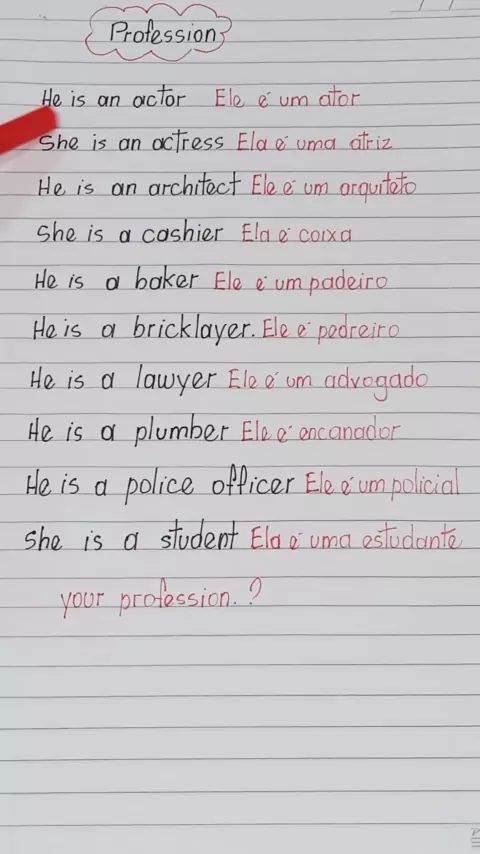 Profession
He is an actor Ele é um ator
She is an actress Ela é uma atriz
He is an architect Ele é um arquiteto
She is a cashier Ela é caixa
He is a baker Ele é um padeiro
He is a bricklayer. Ele é pedreiro
He is a lawyer Ele é um advogado
He is a plumber Ele é encanador
He is a police officer Ele é um policial
She is a student Ela é uma estudante
your profession. ?